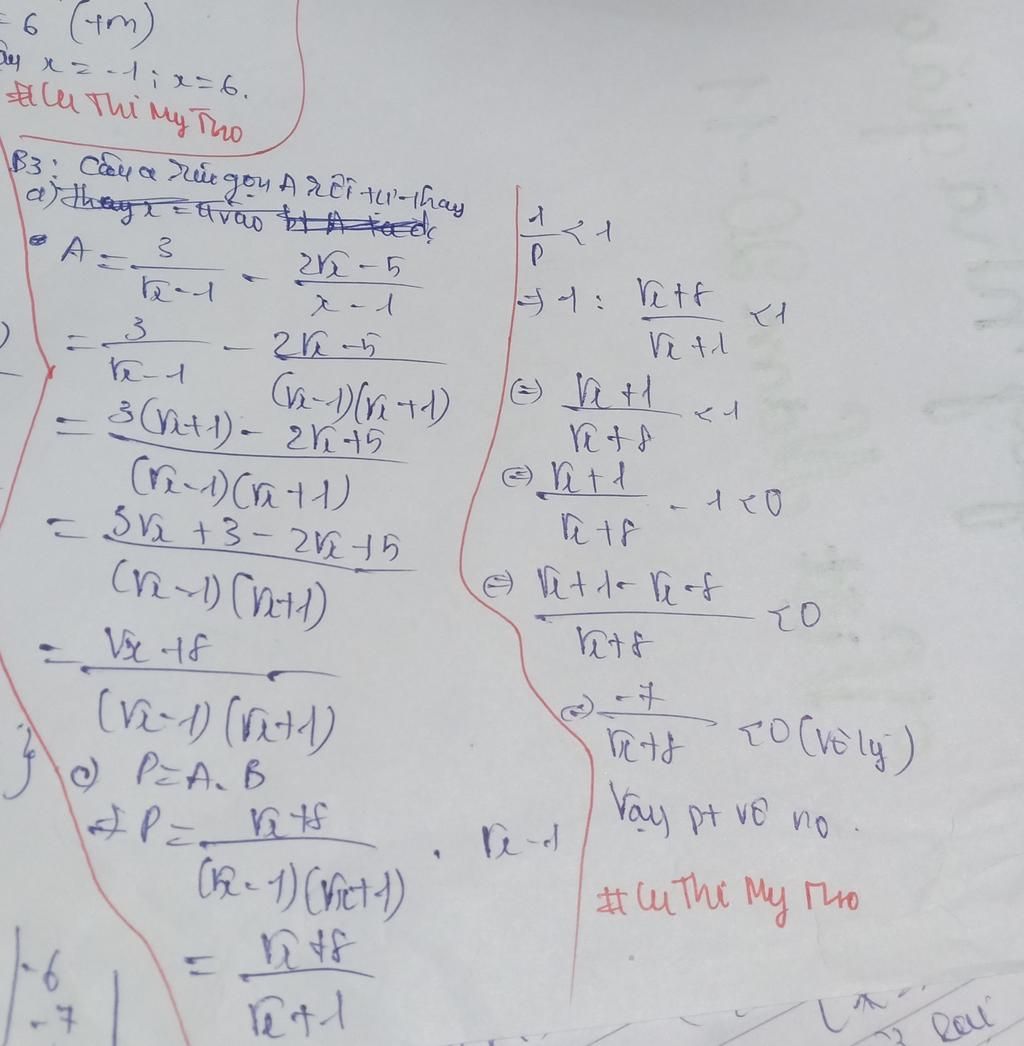 = 6 (tm)
x = -1 ; x = 6.
#Cu Thi My Tho
B3: Câu a rút gọn A rồi tự thay
a) thay x = 4 vào bt A ta đc
A = 3/(√x - 1) - (2√x - 5)/(x - 1)
= 3/(√x - 1) - (2√x - 5)/((√x - 1)(√x + 1))
= (3(√x + 1) - 2√x + 5)/((√x - 1)(√x + 1))
= (3√x + 3 - 2√x + 5)/((√x - 1)(√x + 1))
= (√x + 8)/((√x - 1)(√x + 1))
c) P = A. B
=> P = (√x + 8)/((√x - 1)(√x + 1)) . √x - 1
= (√x + 8)/(√x + 1)
1/P < 1
=> 1 : (√x + 8)/(√x + 1) < 1
(=) (√x + 1)/(√x + 8) < 1
(=) (√x + 1)/(√x + 8) - 1 < 0
(=) (√x + 1 - √x - 8)/(√x + 8) < 0
(=) -7/(√x + 8) < 0 (vô lý)
Vậy pt vô no.
#Cu Thi My Tho
-6
-7